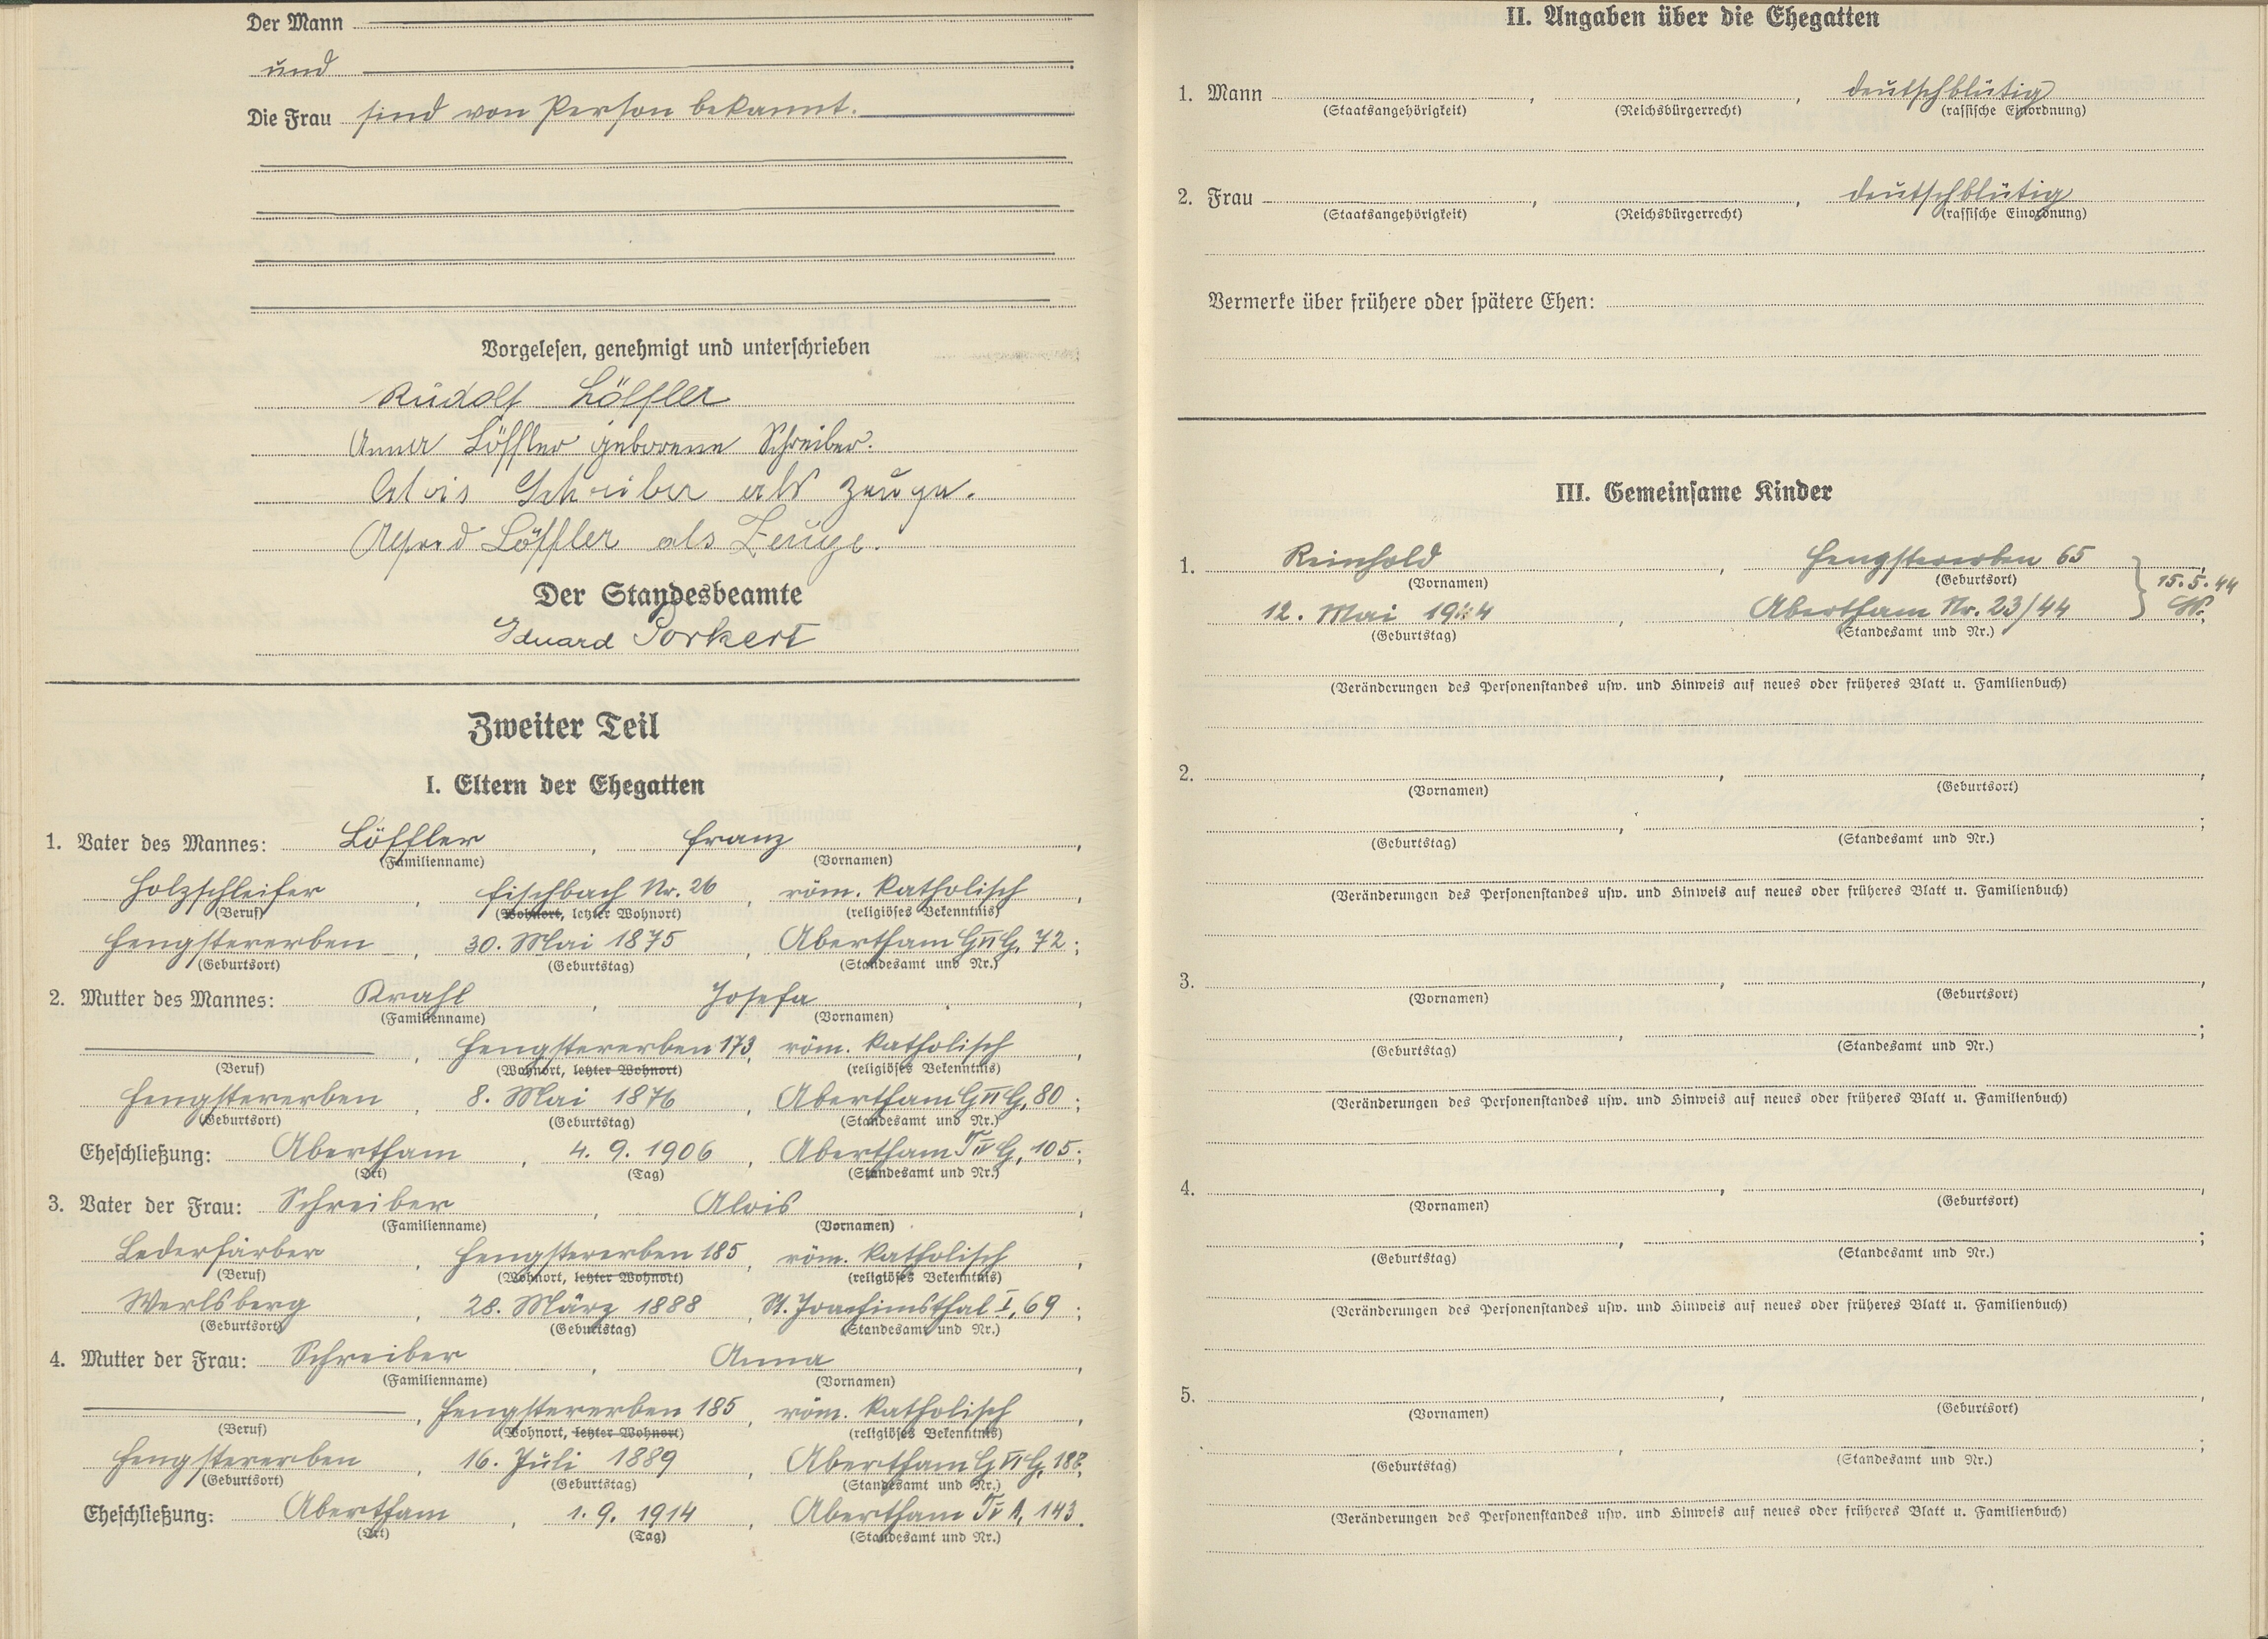 Der Mann
und
Die Frau sind von Person bekannt.
Vorgelesen, genehmigt und unterschrieben
Rudolf Löffler
Anna Löffler geborene Schreiber.
Alois Schreiber als Zeuge.
Alfred Löffler als Zeuge.
Der Standesbeamte
Eduard Porkert
Zweiter Teil
I. Eltern der Ehegatten
1. Vater des Mannes: Löffler, Franz,
(Familienname) (Vornamen)
Holzschleifer, Fischbach Nr. 26, röm. katholisch,
(Beruf) (Wohnort, letzter Wohnort) (religiöses Bekenntnis)
Hengstererben, 30. Mai 1875, Abertham G VI G, 72;
(Geburtsort) (Geburtstag) (Standesamt und Nr.)
2. Mutter des Mannes: Krahl, Josefa,
(Familienname) (Vornamen)
, Hengstererben 173, röm. katholisch,
(Beruf) (Wohnort, letzter Wohnort) (religiöses Bekenntnis)
Hengstererben, 8. Mai 1876, Abertham G VI G, 80;
(Geburtsort) (Geburtstag) (Standesamt und Nr.)
Eheschließung: Abertham, 4. 9. 1906, Abertham T IV G, 105;
(Ort) (Tag) (Standesamt und Nr.)
3. Vater der Frau: Schreiber, Alois,
(Familienname) (Vornamen)
Lederfärber, Hengstererben 185, röm. katholisch,
(Beruf) (Wohnort, letzter Wohnort) (religiöses Bekenntnis)
Werlsberg, 28. März 1888, St. Joachimsthal I, 69;
(Geburtsort) (Geburtstag) (Standesamt und Nr.)
4. Mutter der Frau: Schreiber, Anna,
(Familienname) (Vornamen)
, Hengstererben 185, röm. katholisch,
(Beruf) (Wohnort, letzter Wohnort) (religiöses Bekenntnis)
Hengstererben, 16. Juli 1889, Abertham G VI G, 188;
(Geburtsort) (Geburtstag) (Standesamt und Nr.)
Eheschließung: Abertham, 1. 9. 1914, Abertham T V A, 143.
(Ort) (Tag) (Standesamt und Nr.)
II. Angaben über die Ehegatten
1. Mann , , deutschblütig
(Staatsangehörigkeit) (Reichsbürgerrecht) (rassische Einordnung)
2. Frau , , deutschblütig
(Staatsangehörigkeit) (Reichsbürgerrecht) (rassische Einordnung)
Vermerke über frühere oder spätere Ehen:
III. Gemeinsame Kinder
1. Reinhold, Hengstererben 65,
(Vornamen) (Geburtsort) 15. 5. 44
12. Mai 1944, Abertham Nr. 23/44
(Geburtstag) (Standesamt und Nr.)
(Veränderungen des Personenstandes usw. und Hinweis auf neues oder früheres Blatt u. Familienbuch)
2. , ,
(Vornamen) (Geburtsort)
, ;
(Geburtstag) (Standesamt und Nr.)
(Veränderungen des Personenstandes usw. und Hinweis auf neues oder früheres Blatt u. Familienbuch)
3. , ,
(Vornamen) (Geburtsort)
, ;
(Geburtstag) (Standesamt und Nr.)
(Veränderungen des Personenstandes usw. und Hinweis auf neues oder früheres Blatt u. Familienbuch)
4. , ,
(Vornamen) (Geburtsort)
, ;
(Geburtstag) (Standesamt und Nr.)
(Veränderungen des Personenstandes usw. und Hinweis auf neues oder früheres Blatt u. Familienbuch)
5. , ,
(Vornamen) (Geburtsort)
, ;
(Geburtstag) (Standesamt und Nr.)
(Veränderungen des Personenstandes usw. und Hinweis auf neues oder früheres Blatt u. Familienbuch)